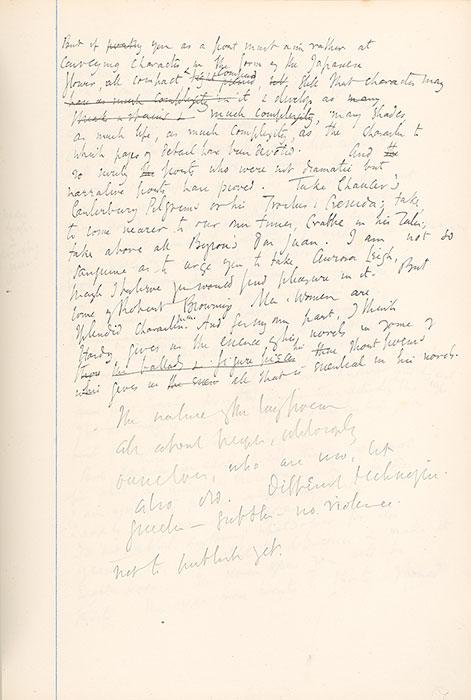 But if you as a poet must aim rather at
conveying character in the form of the Japanese
flower, all compact & still that character may
have as much complexity in it & develop as many
much complexity, many shades,
as much life, as much complexity, as the character to
which pages of detail have been devoted. And
so surely poets who were not dramatic but
narrative poets have proved. Take Chaucer's
Canterbury Pilgrims or his Troilus & Cressida; take
to come nearer to our own times, Crabbe in his Tales,
take above all Byron's Don Juan. I am not so
sanguine as to urge you to take Aurora Leigh,
though I believe you would find pleasure in it. But
some of Robert Browning's Men & Women are
splendid characters. And for my own part, I think
Hardy gives us the essence of his novels in some of
his ballads & short poems
gives us all that is essential in his novels.
The nature of the long poem
all about people,
ourselves, who are now, but
also old. Different technique.
quicker — subtler — no violence.
not to publish yet.